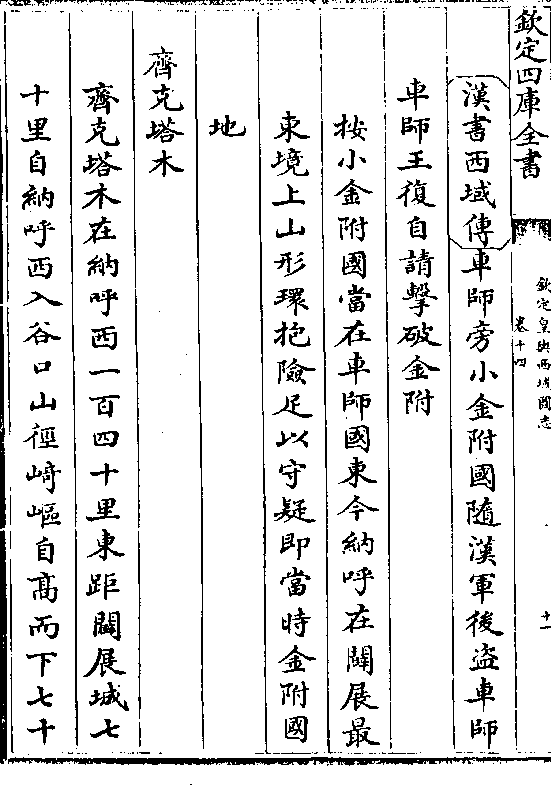 欽定四庫全書
欽定皇輿西域圖志
卷十四
十一
漢書西域傳車師旁小金附國隨漢軍後盜車師
車師王復自請擊破金附
按小金附國當在車師國東今納呼在闢展最
東境上山形環抱險足以守疑即當時金附國
地
齊克塔木
齊克塔木在納呼西一百四十里東距闢展城七
十里自納呼西入谷口山徑﨑嶇自髙而下七十